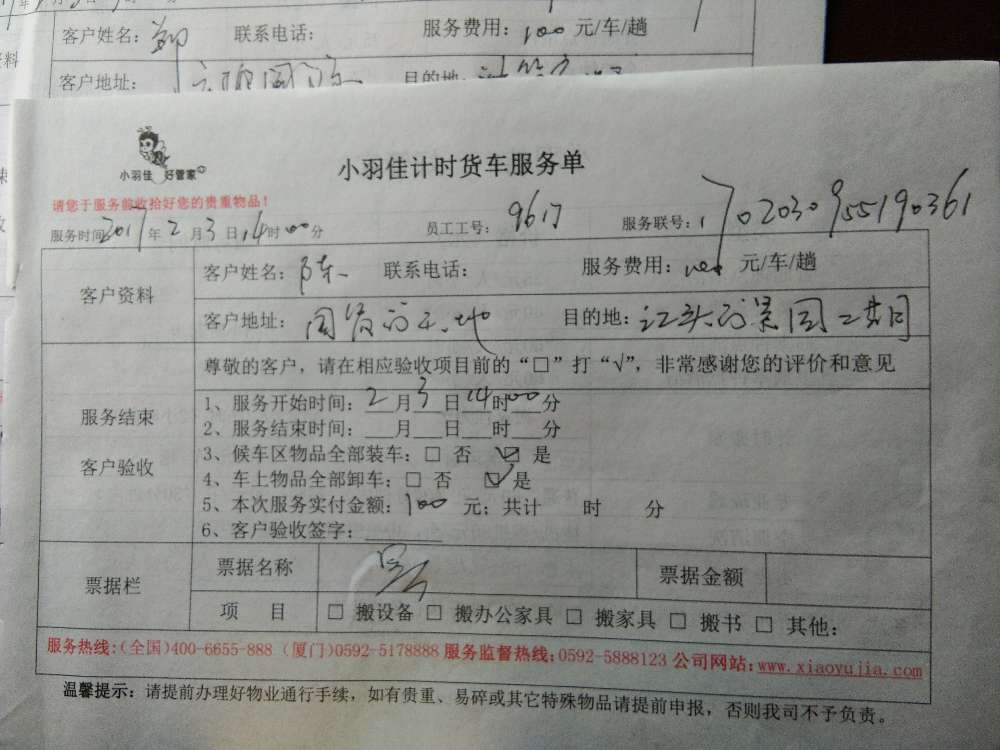 客户姓名：郭 联系电话： 服务费用：100 元/车/趟
客户地址： 目的地：
小羽佳 好管家
小羽佳计时货车服务单
请您于服务前收拾好您的贵重物品！
服务时间2017年2月3日14时00分 员工工号：9617 服务联号：1702030955190361
客户资料
客户姓名：陈 联系电话： 服务费用：100 元/车/趟
客户地址： 目的地：江头
尊敬的客户，请在相应验收项目前的“□”打“√”，非常感谢您的评价和意见
服务结束
客户验收
1、服务开始时间：2月3日14时00分
2、服务结束时间：___月___日___时___分
3、候车区物品全部装车：□ 否 ☑ 是
4、车上物品全部卸车：□ 否 ☑ 是
5、本次服务实付金额：100 元；共计 时 分
6、客户验收签字：
票据栏
票据名称 票据金额
项 目 □ 搬设备 □ 搬办公家具 □ 搬家具 □ 搬书 □ 其他：
服务热线:(全国)400-6655-888 (厦门)0592-5178888 服务监督热线:0592-5888123 公司网站:www.xiaoyujia.com
温馨提示：请提前办理好物业通行手续，如有贵重、易碎或其它特殊物品请提前申报，否则我司不予负责。